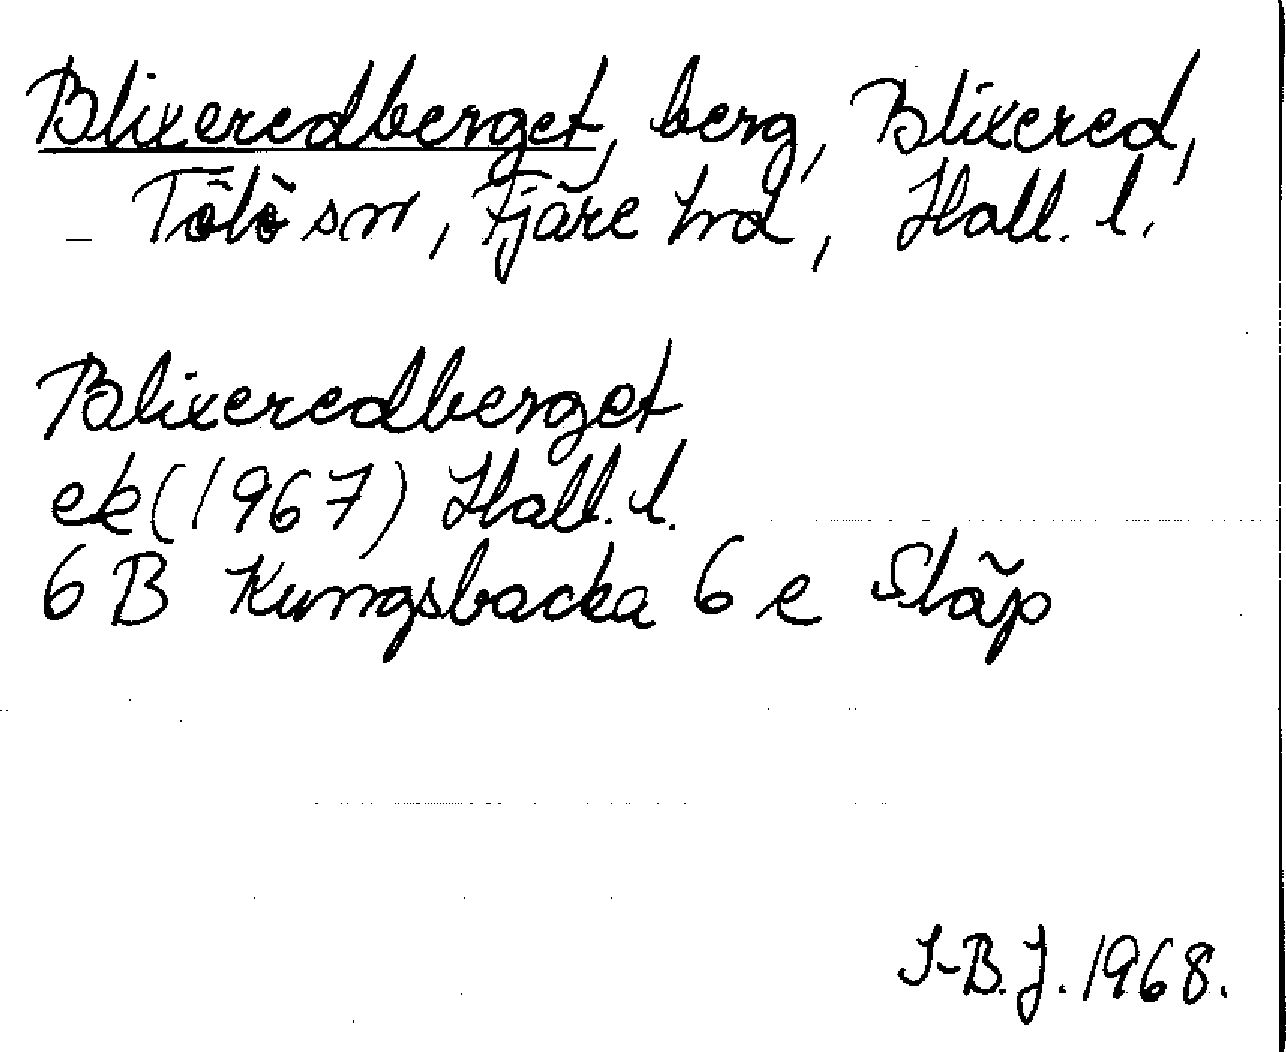 Blixeredberget, berg, Blixered,
Tölö sn, Fjäre hd, Hall. l.
Blixeredberget
ek (1967) Hall. l.
6 B Kungsbacka 6 e Släp
I-B.J. 1968.